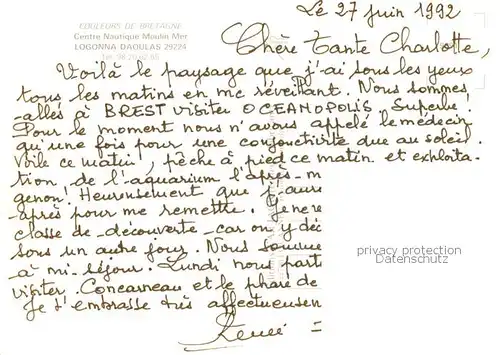 Le 27 juin 1992
COULEURS DE BRETAGNE
Centre Nautique Moulin Mer
LOGONNA DAOULAS 29224
Chère Tante Charlotte,
Voilà le paysage que j'ai sous les yeux
tous les matins en me réveillant. Nous sommes
-allés à BREST visiter OCEANOPOLIS. Superbe!
Pour le moment nous n'avons appelé le médecin
qu'une fois pour une conjonctivite due au soleil.
Voile ce matin, pêche à pied ce matin et exploita-
tion de l'aquarium l'après-m
genon! Heureusement que j'aure
-après pour me remettre.
classe de -découverte -car on y déc
sous un autre jour. Nous somme
-à mi-séjour. Lundi nous part
visiter Concarneau et le phare de
Je t'embrasse très affectueusen
Renée
privacy protection
Datenschutz